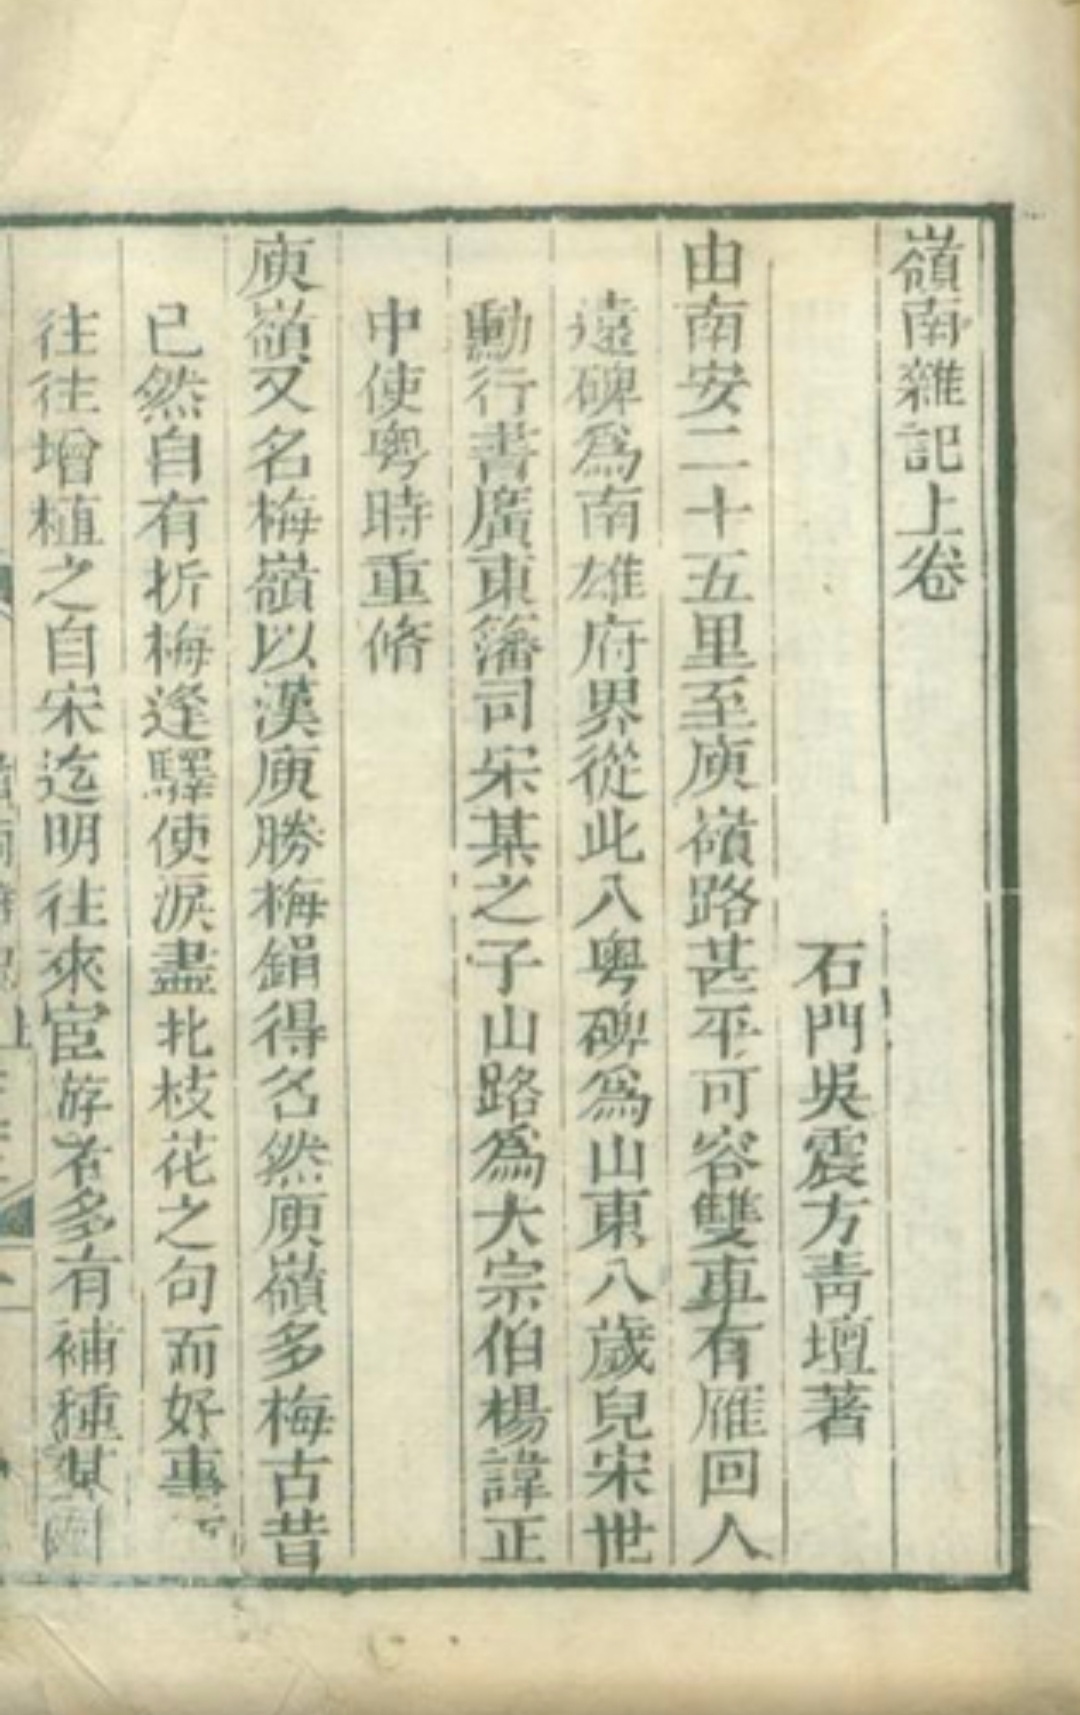 嶺南雜記上卷
石門吳震方靑壇著
由南安二十五里至庾嶺路甚平可容雙車有雁回人
遠碑爲南雄府界從此入粵碑爲山東八歲兒宋世
勳行書廣東藩司宋某之子山路爲大宗伯楊諱正
中使粵時重脩
庾嶺又名梅嶺以漢庾勝梅鋗得名然庾嶺多梅古昔
已然自有折梅逢驛使淚盡北枝花之句而好事
往往增植之自宋迄明往來宦游者多有補種某